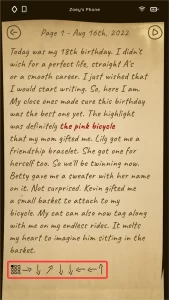 Zoey's Phone
Page 1 - Aug 16th, 2022
Today was my 18th birthday. I didn't
wish for a perfect life, straight A's
or a smooth career. I just wished that
I would start writing. So, here I am.
My close ones made sure this birthday
was the best one yet. The highlight
was definitely the pink bicycle
that my mom gifted me. Lily got me a
friendship bracelet. She got one for
herself too. So we'll be twinning now.
Betty gave me a sweater with her name
on it. Not surprised. Kevin gifted me
a small basket to attach to my
bicycle. My cat can also now tag along
with me on my endless rides. It melts
my heart to imagine him sitting in the
basket.
→ ↓ ↗ ↓ ↓ ← ← ?